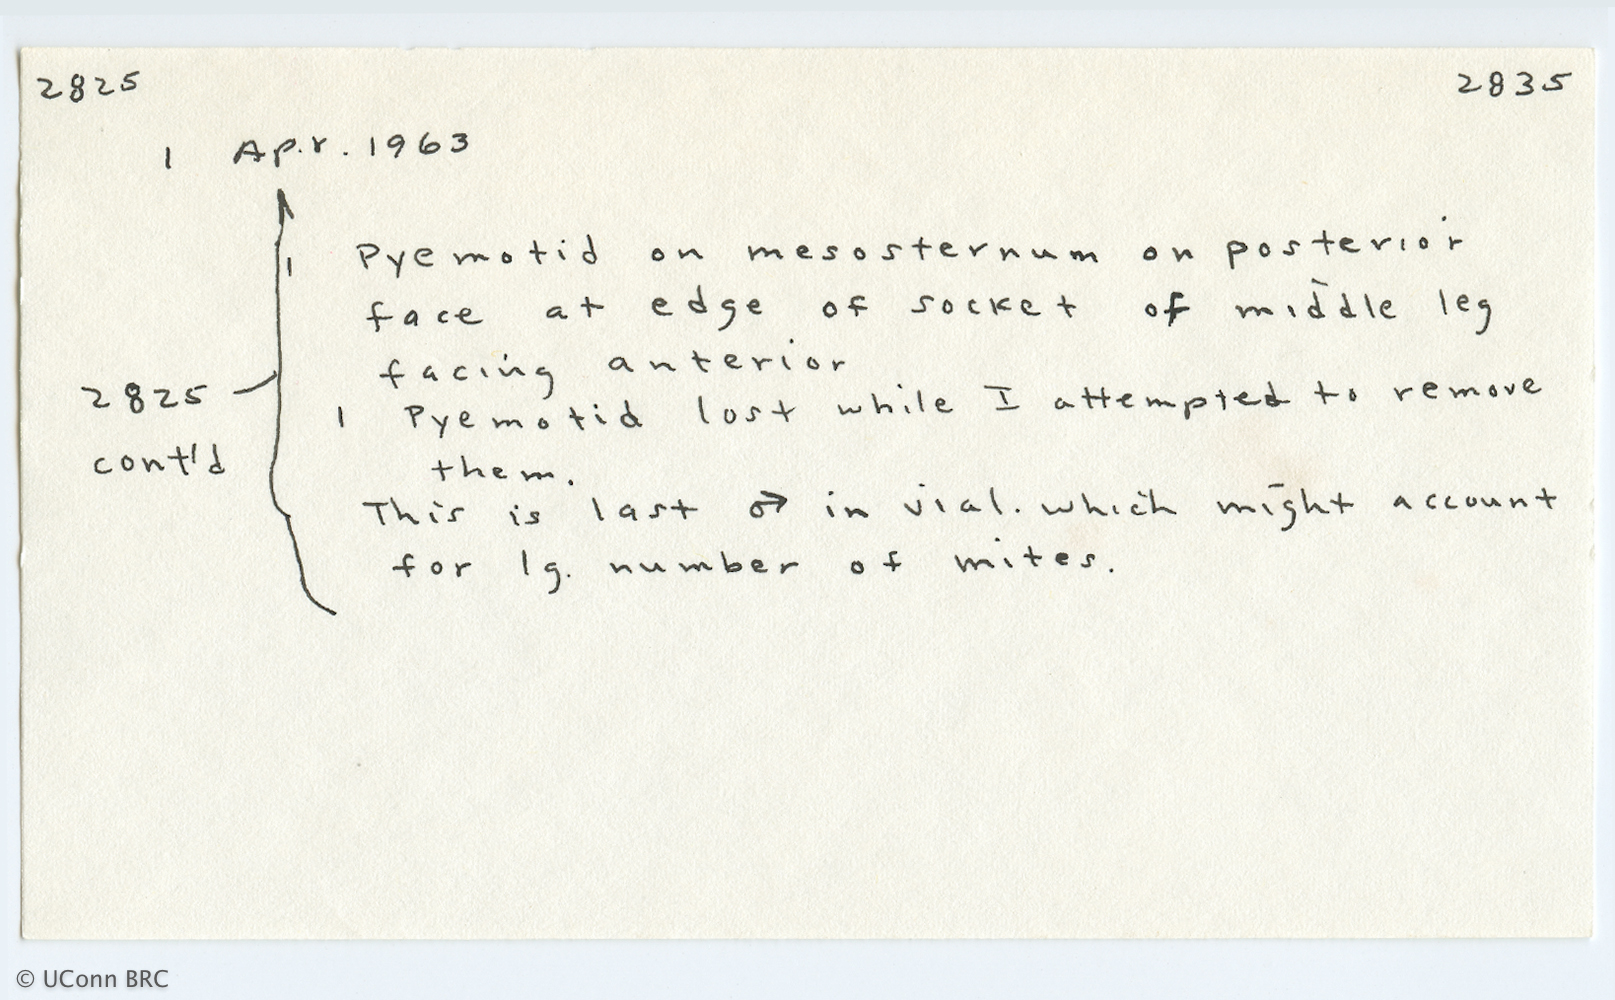 2825 2835
1 Apr. 1963
1 Pyemotid on mesosternum on posterior
face at edge of socket of middle leg
facing anterior
2825
cont'd
1 Pyemotid lost while I attempted to remove
them.
This is last ♂ in vial. which might account
for lg. number of mites.
© UConn BRC